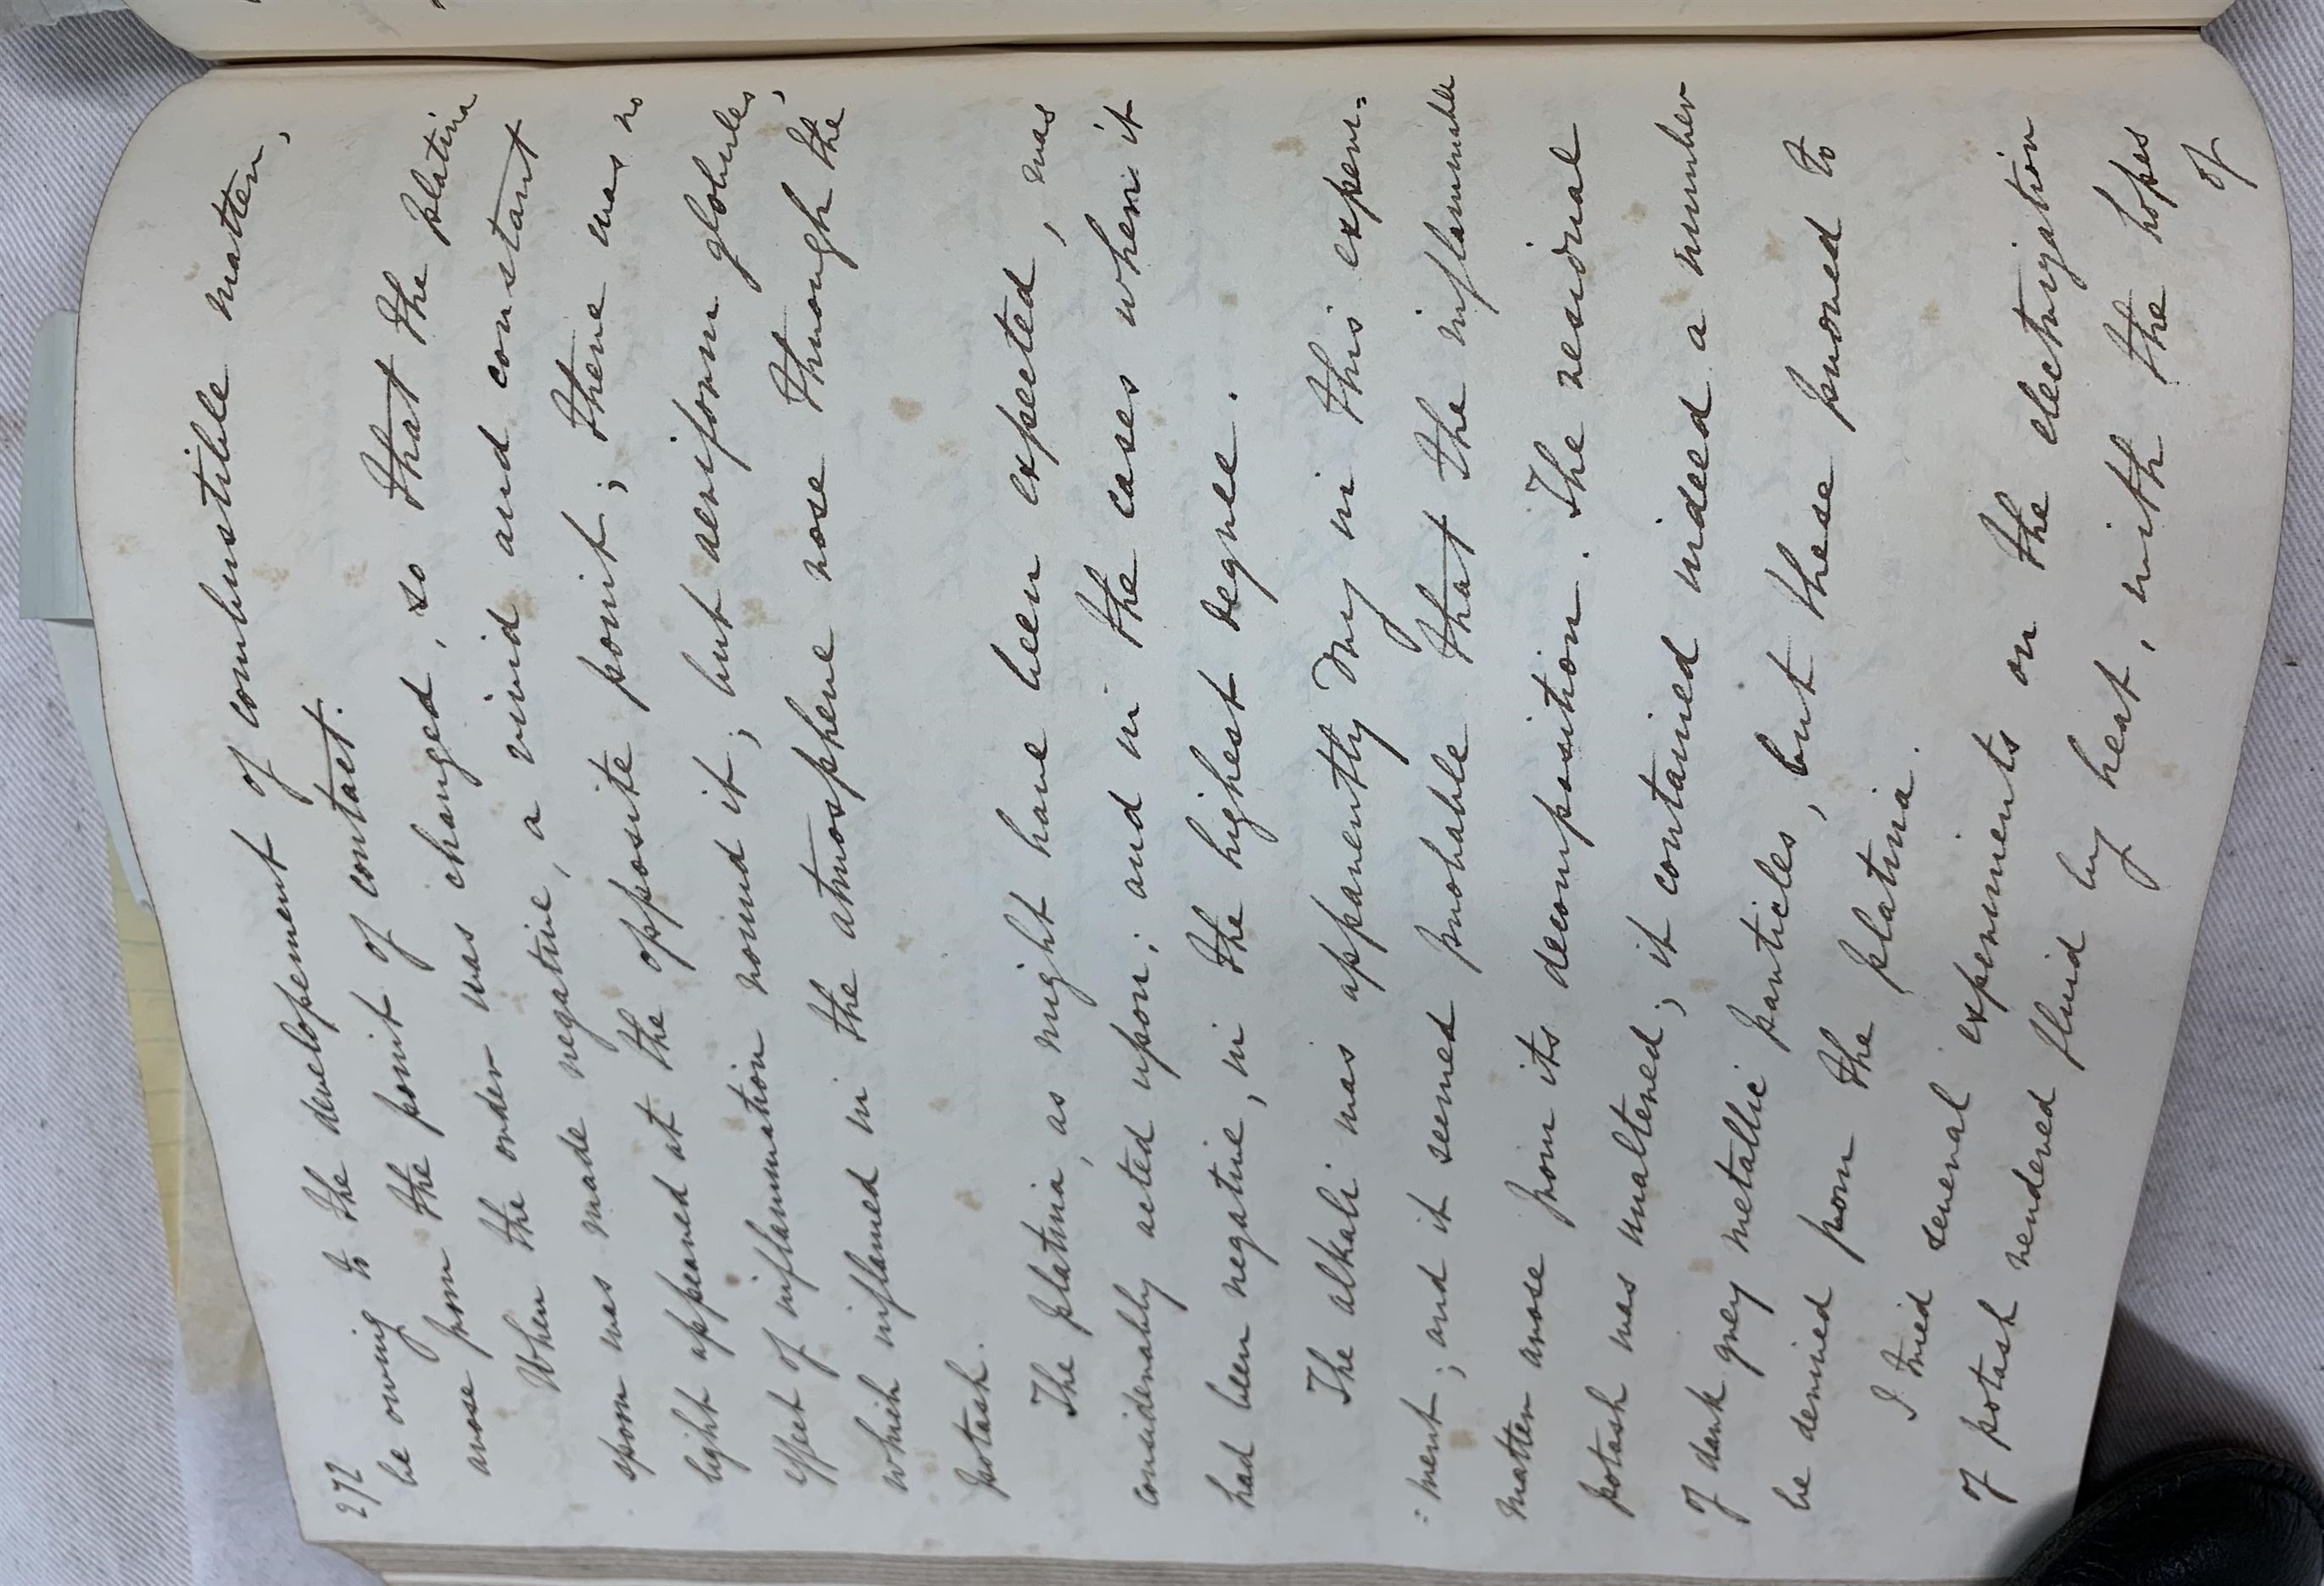 272
be owing to the developement of combustible matter,
arose from the point of contact.
When the order was changed, so that the platina
spoon was made negative, a vivid and constant
light appeared at the opposite point; there was no
effect of inflammation round it; but aeriform globules,
which inflamed in the atmosphere rose through the
potash.
The platina, as might have been expected, was
considerably acted upon; and in the cases when it
had been negative, in the highest degree.
The alkali was apparently dry in this experi=
=ment; and it seemed probable that the inflammable
matter arose from its decomposition. The residual
potash was unaltered; it contained indeed a number
of dark grey metallic particles, but these proved to
be derived from the platina.
I tried several experiments on the electrization
of potash rendered fluid by heat, with the hopes
of